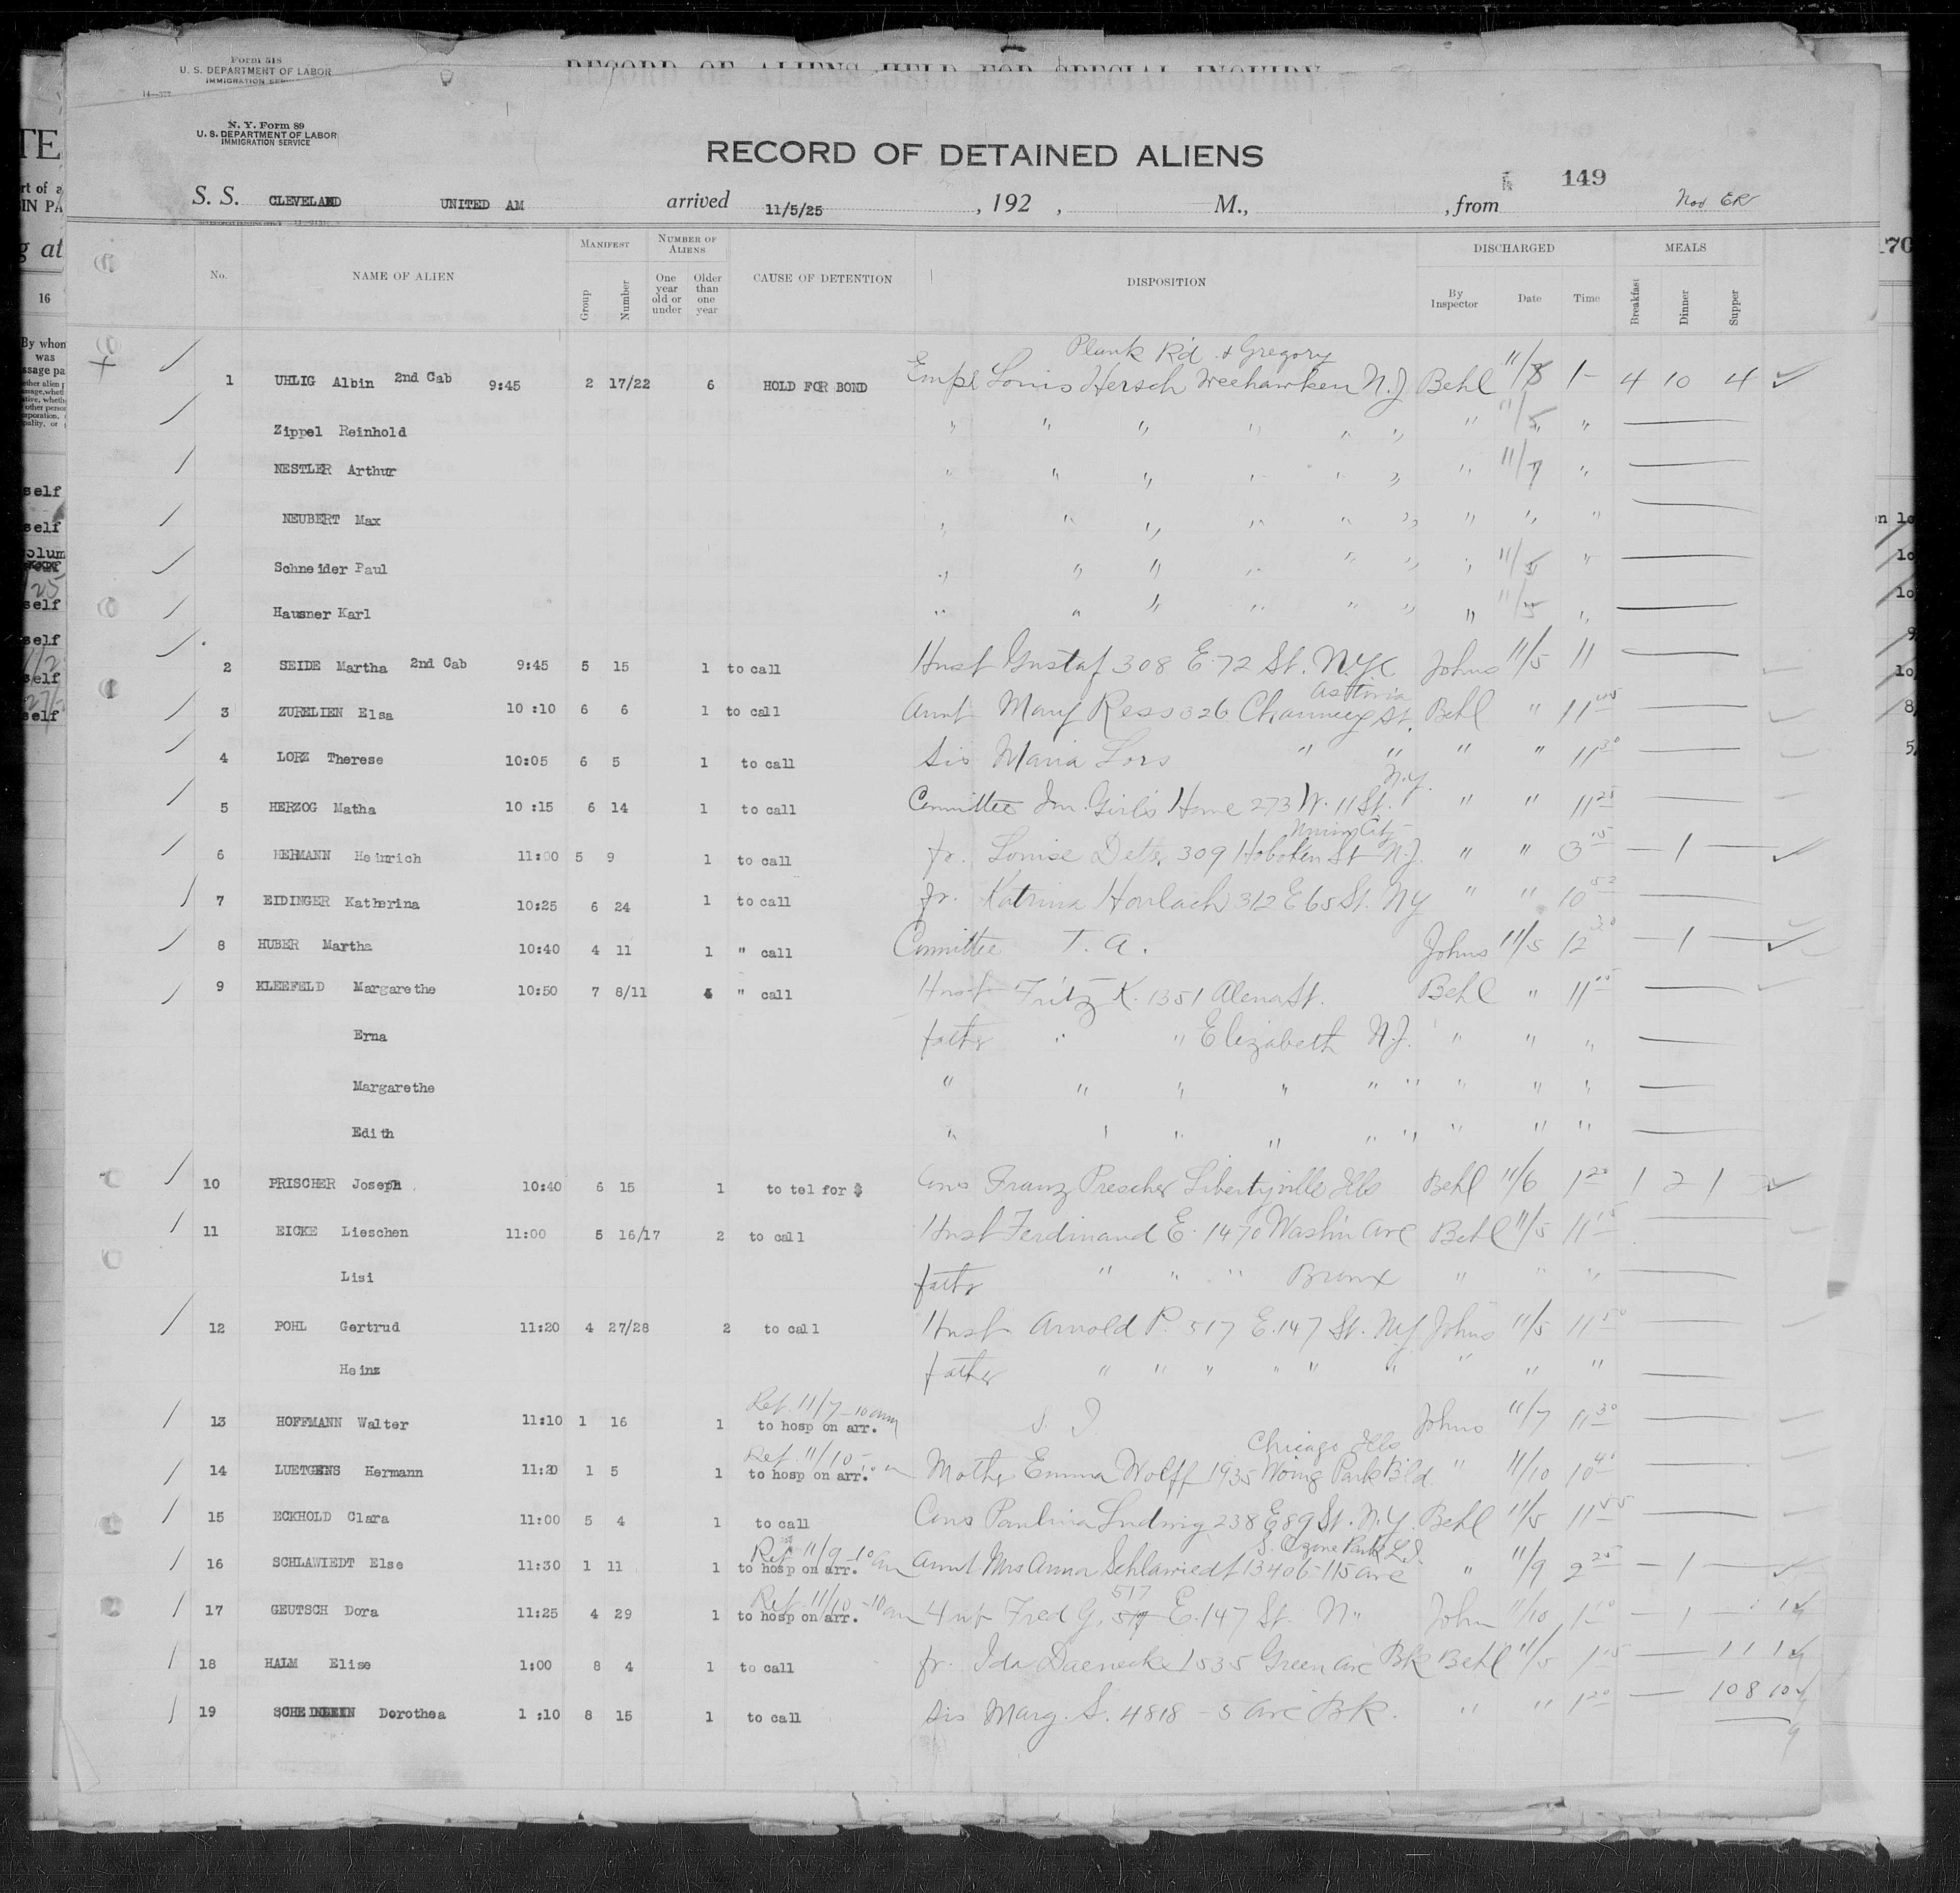 Form 518
U. S. DEPARTMENT OF LABOR
IMMIGRATION SERVICE
RECORD OF ALIENS HELD FOR SPECIAL INQUIRY
N. Y. Form 89
U. S. DEPARTMENT OF LABOR
IMMIGRATION SERVICE
RECORD OF DETAINED ALIENS
149
S. S. CLEVELAND UNITED AM arrived 11/5/25, 192 , M., , from
No. NAME OF ALIEN MANIFEST Group Number NUMBER OF ALIENS One year old or under Older than one year CAUSE OF DETENTION DISPOSITION DISCHARGED By Inspector Date Time MEALS Breakfast Dinner Supper
Plank Rd & Gregory
1 UHLIG Albin 2nd Cab 9:45 2 17/22 6 HOLD FOR BOND Empl Louis Hersch Weehawken N.J Behl 11/8 1- 4 10 4
Zippel Reinhold " " " " " " " 11/5 "
NESTLER Arthur " " " " " " " 11/7 "
NEUBERT Max " " " " " " " " "
Schneider Paul " " " " " " " 11/5 "
Hausner Karl " " " " " " " 11/5 "
2 SEIDE Martha 2nd Cab 9:45 5 15 1 to call Husb Gustaf 308 E. 72 St. N.Y.C Johns 11/5 11
Asttoria
3 ZURELIEN Elsa 10:10 6 6 1 to call Aunt Mary Ress 326 Chauncey St. Behl " 11 05
4 LORZ Therese 10:05 6 5 1 to call Sis Maria Lors " " " " 11 30
N.Y.
5 HERZOG Matha 10:15 6 14 1 to call Committee Im. Girl's Home 273 W. 11 St. " " 11 25
6 HERMANN Heinrich 11:00 5 9 1 to call fr. Louise Detts 309 Hoboken St N.J. " " 3 15 1
7 EIDINGER Katherina 10:25 6 24 1 to call fr. Katrina Horlach 312 E 65 St. NY " " 10 52
8 HUBER Martha 10:40 4 11 1 " call Committee T. A. Johns 11/5 12 30 1
9 KLEEFELD Margarethe 10:50 7 8/11 4 " call Husb Fritz K. 1351 Alena St. Behl " 11
Erna father " " Elizabeth N.J. " " "
Margarethe " " " " " " " " "
Edith " " " " " " " " "
10 PRISCHER Joseph 10:40 6 15 1 to tel for $ Cous Franz Prescher Libertyville Ills Behl 11/6 1 20 1 2 1
11 EICKE Lieschen 11:00 5 16/17 2 to call Husb Ferdinand E. 1470 Wash'n Ave Behl 11/5 11 15
Lisi father " " " Bronx " " "
12 POHL Gertrud 11:20 4 27/28 2 to call Husb Arnold P. 517 E. 147 St. NY Johns 11/5 11 50
Heinz father " " " " " " " " "
Ret. 11/7 - 10 am
13 HOFFMANN Walter 11:10 1 16 1 to hosp on arr. S. I Johns 11/7 11 30
Ret. 11/10 Chicago Ills
14 LUETGENS Hermann 11:20 1 5 1 to hosp on arr. Mother Emma Wolff 1935 Park Bld. " 11/10 10 40
15 ECKHOLD Clara 11:00 5 4 1 to call Cous Paulina Ludwig 238 E 89 St. N.Y. Behl 11/5 11 55
Ret 11/9 - 10 am S. Ozone Park L.I.
16 SCHLAWIEDT Else 11:30 1 11 1 to hosp on arr. Aunt Mrs Anna Schlawiedt 13406-115 ave " 11/9 2 25 1
Ret 11/10 - 10 am 517
17 GEUTSCH Dora 11:25 4 29 1 to hosp on arr. Fred G. E. 147 St. N" John 11/10 1 10 1 1
18 HALM Elise 1:00 8 4 1 to call fr. Ida Daenecke 1535 Green Ave Bk Behl 11/5 1 15 1 1 1
19 Dorothea 1:10 8 15 1 to call Sis Marg. S. 4818 - 5 Ave Bk. " " 1 20 10 8 10